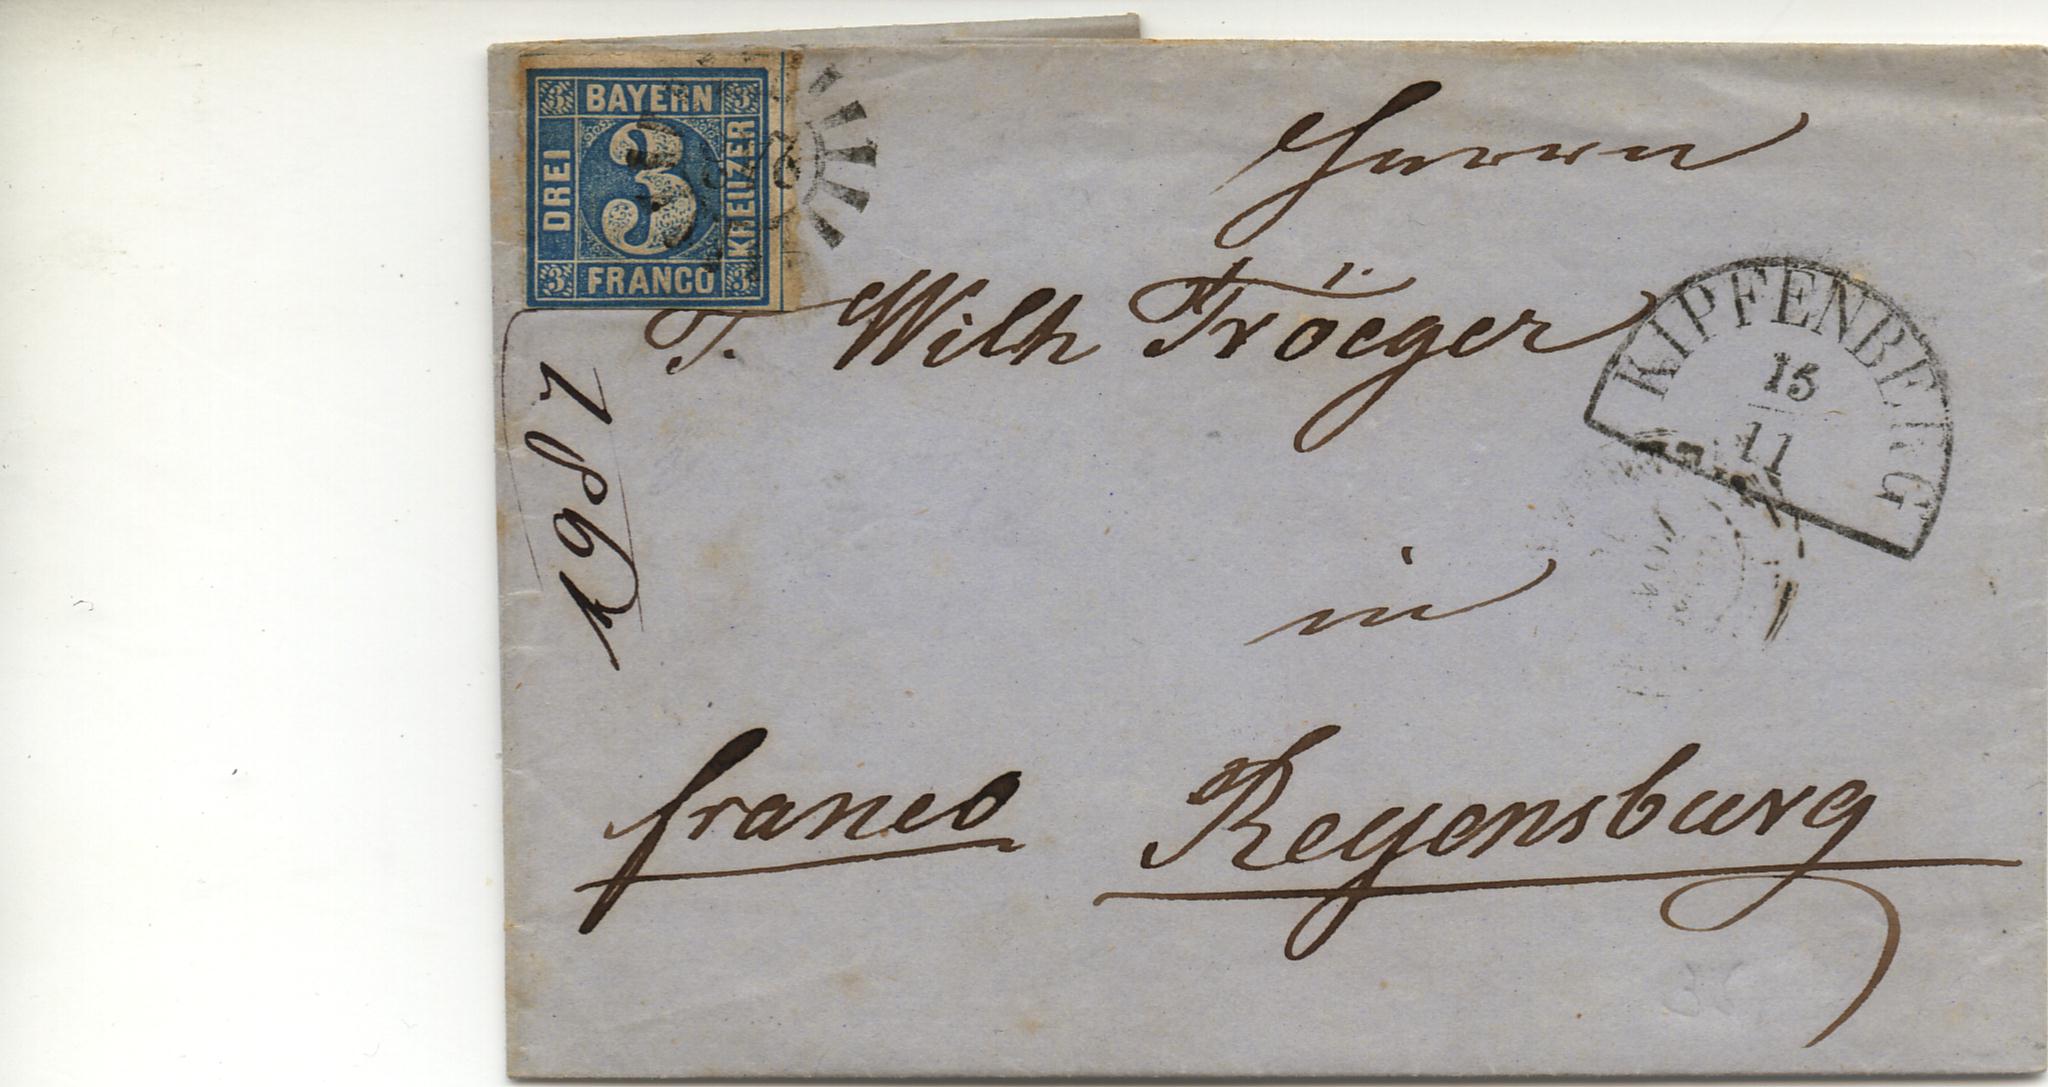 3 BAYERN 3
DREI 3 KREUZER
3 FRANCO 3
Herrn
T. Wilh Tröeger
KIPFENBERG
15
11
in
franco Regensburg
1987